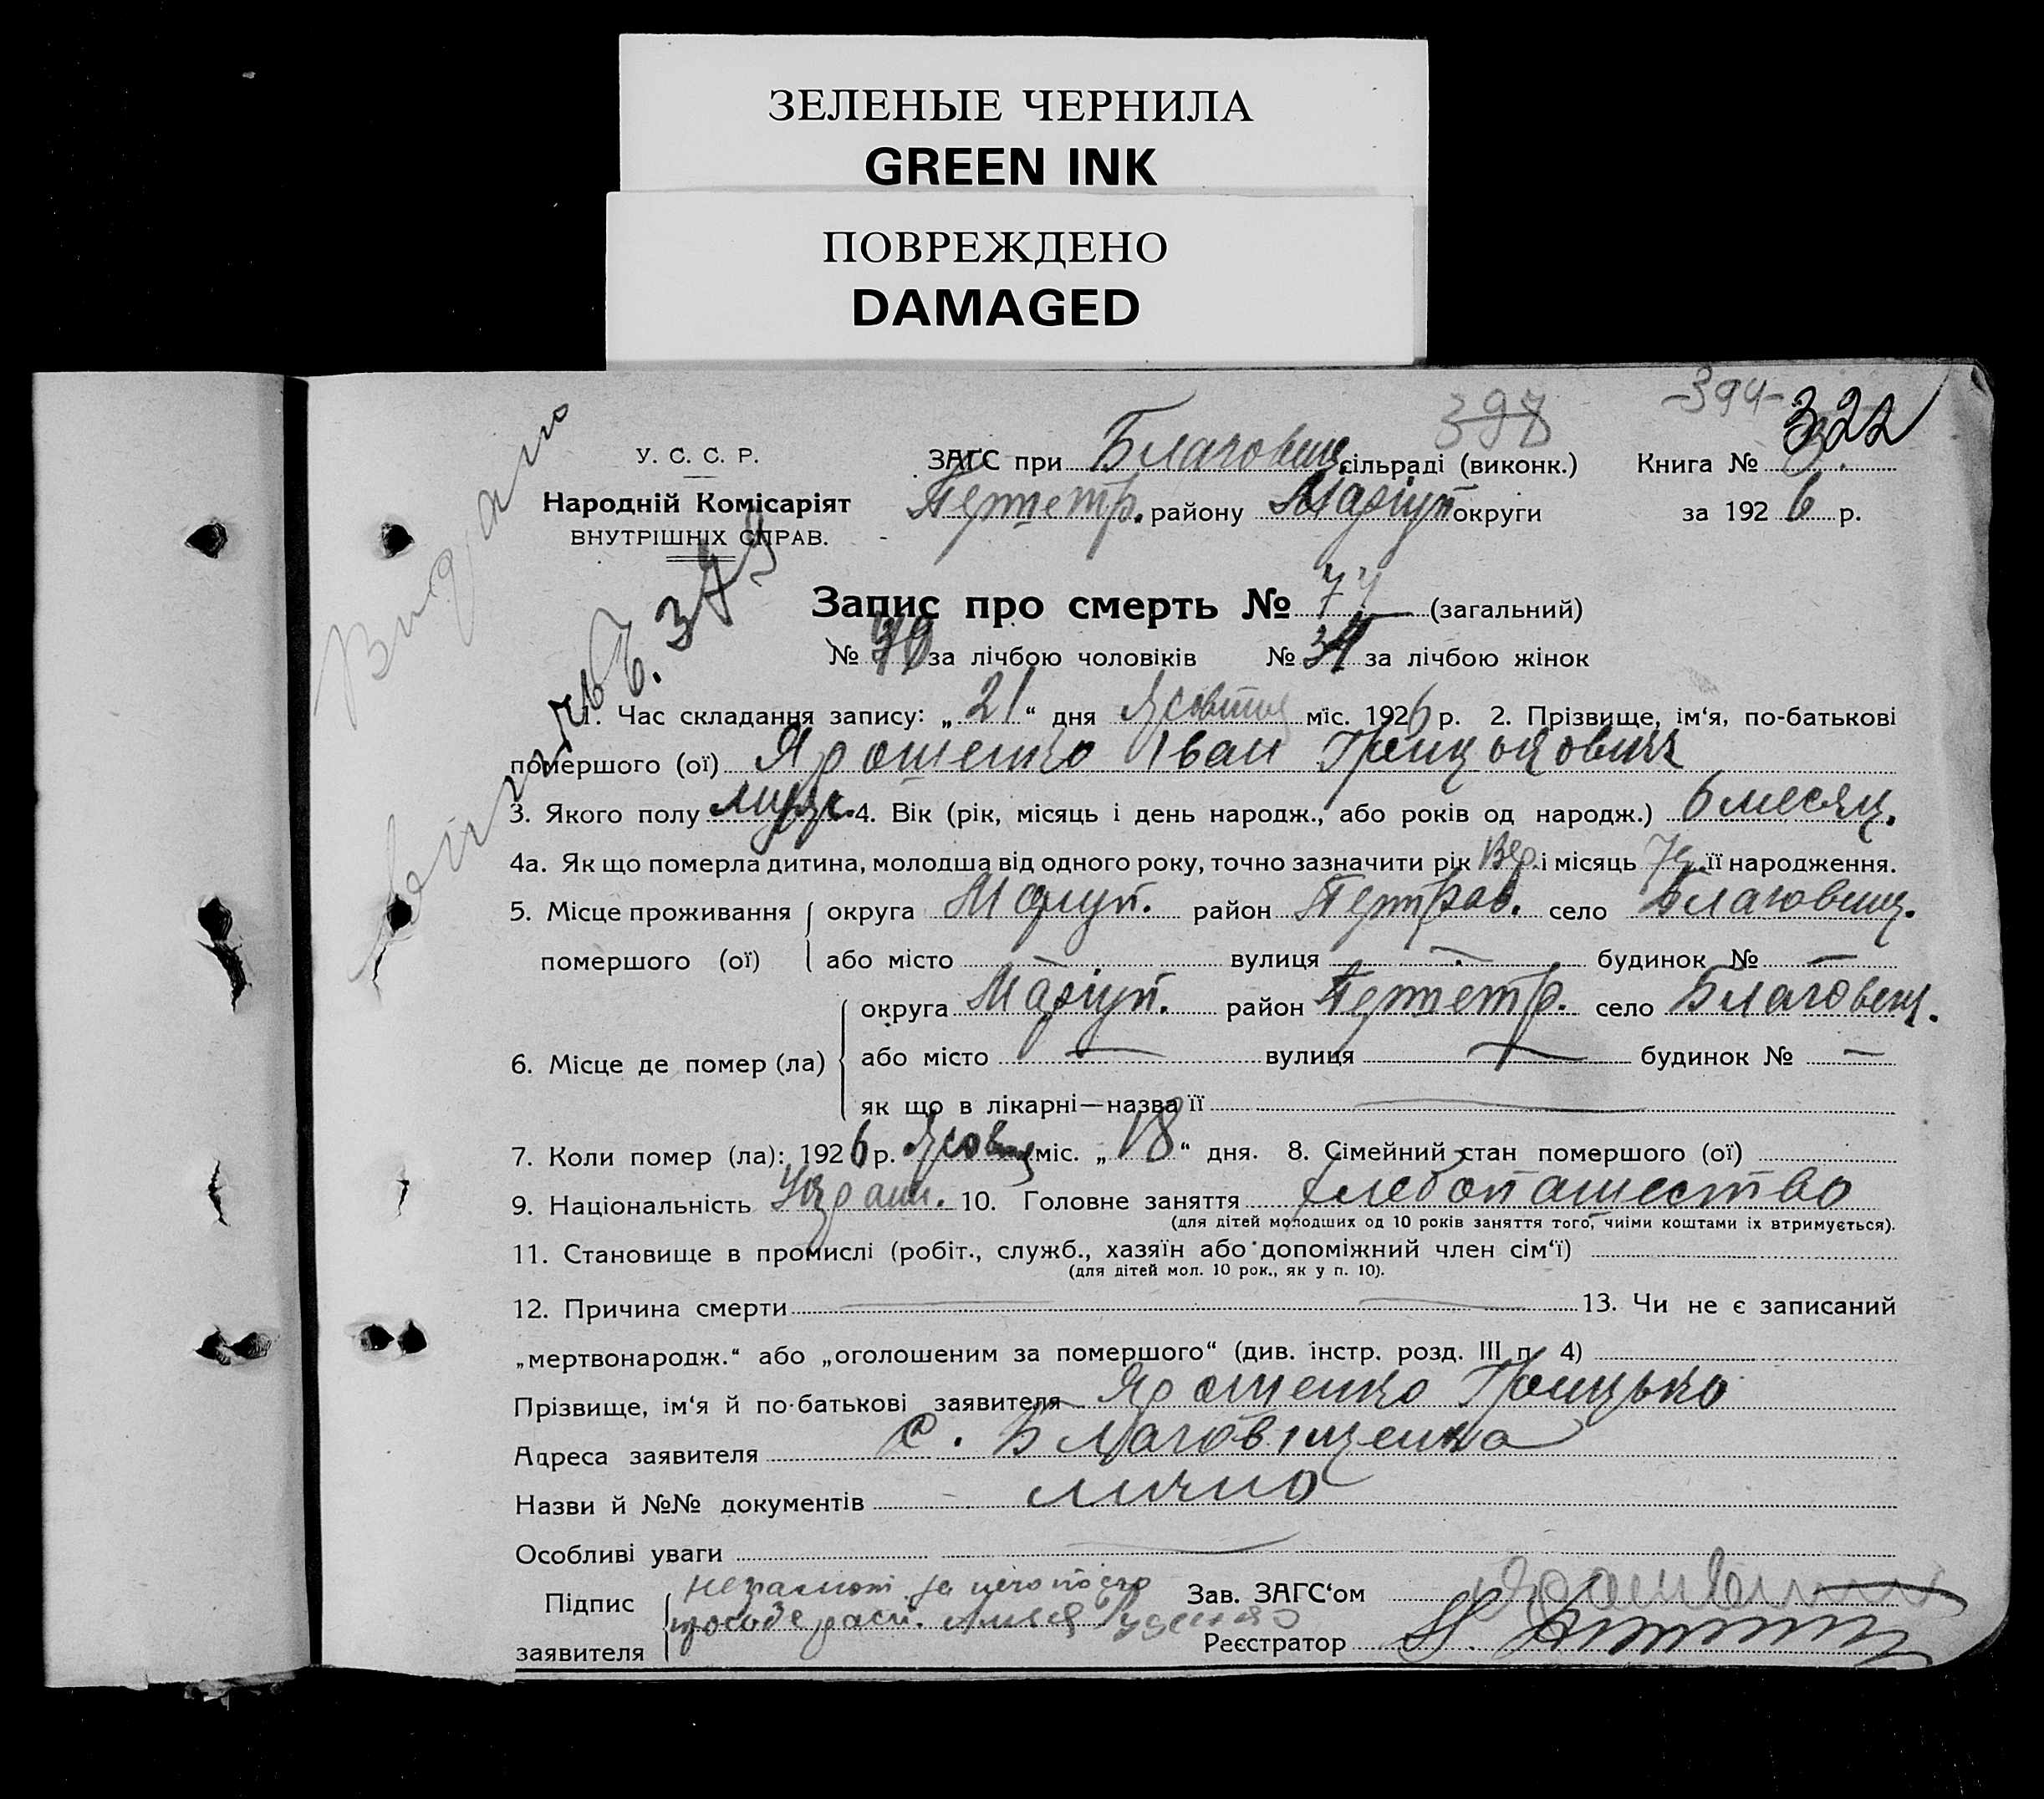 ЗЕЛЕНЫЕ ЧЕРНИЛА
GREEN INK
ПОВРЕЖДЕНО
DAMAGED
397 -394- 322
У. С. С. Р.
Народній Комісаріят
ВНУТРІШНІХ СПРАВ.
Видано
ЗАГС при Благовищ. сільраді (виконк.) Книга №
району Маріуп округи за 1926 р.
Запис про смерть № 77 (загальний)
№ за лічбою чоловіків № за лічбою жінок
1. Час складання запису: „21“ дня Жовтня міс. 1926 р. 2. Прізвище, ім‘я, по-батькові
помершого (ої) Ярошенко Іван Грицькович
3. Якого полу мужс. 4. Вік (рік, місяць і день народж., або років од народж.) 6 месяц.
4а. Як що померла дитина, молодша від одного року, точно зазначити рік і місяць її народження.
5. Місце проживання округа Маріуп. район село Благовищ.
помершого (ої) або місто — вулиця — будинок № —
6. Місце де помер (ла) округа Маріуп. район село Благовещ.
або місто — вулиця — будинок № —
як що в лікарні—назва її —
7. Коли помер (ла): 1926 р. Жовтня міс. „18“ дня. 8. Сімейний стан помершого (ої)
9. Національність Україн. 10. Головне заняття хлебопашество
(для дітей молодших од 10 років заняття того, чиїми коштами їх втримується).
11. Становище в промислі (робіт., служб., хазяїн або допоміжний член сім‘ї)
(для дітей мол. 10 рок., як у п. 10).
12. Причина смерти — 13. Чи не є записаний
„мертвонародж.“ або „оголошеним за помершого“ (див. інстр. розд. III п. 4)
Прізвище, ім‘я й по-батькові заявителя Ярошенко Грицько
Адреса заявителя с. Благовіщенка
Назви й №№ документів лично
Особливі уваги —
Підпис заявителя
Зав. ЗАГС‘ом
Реєстратор